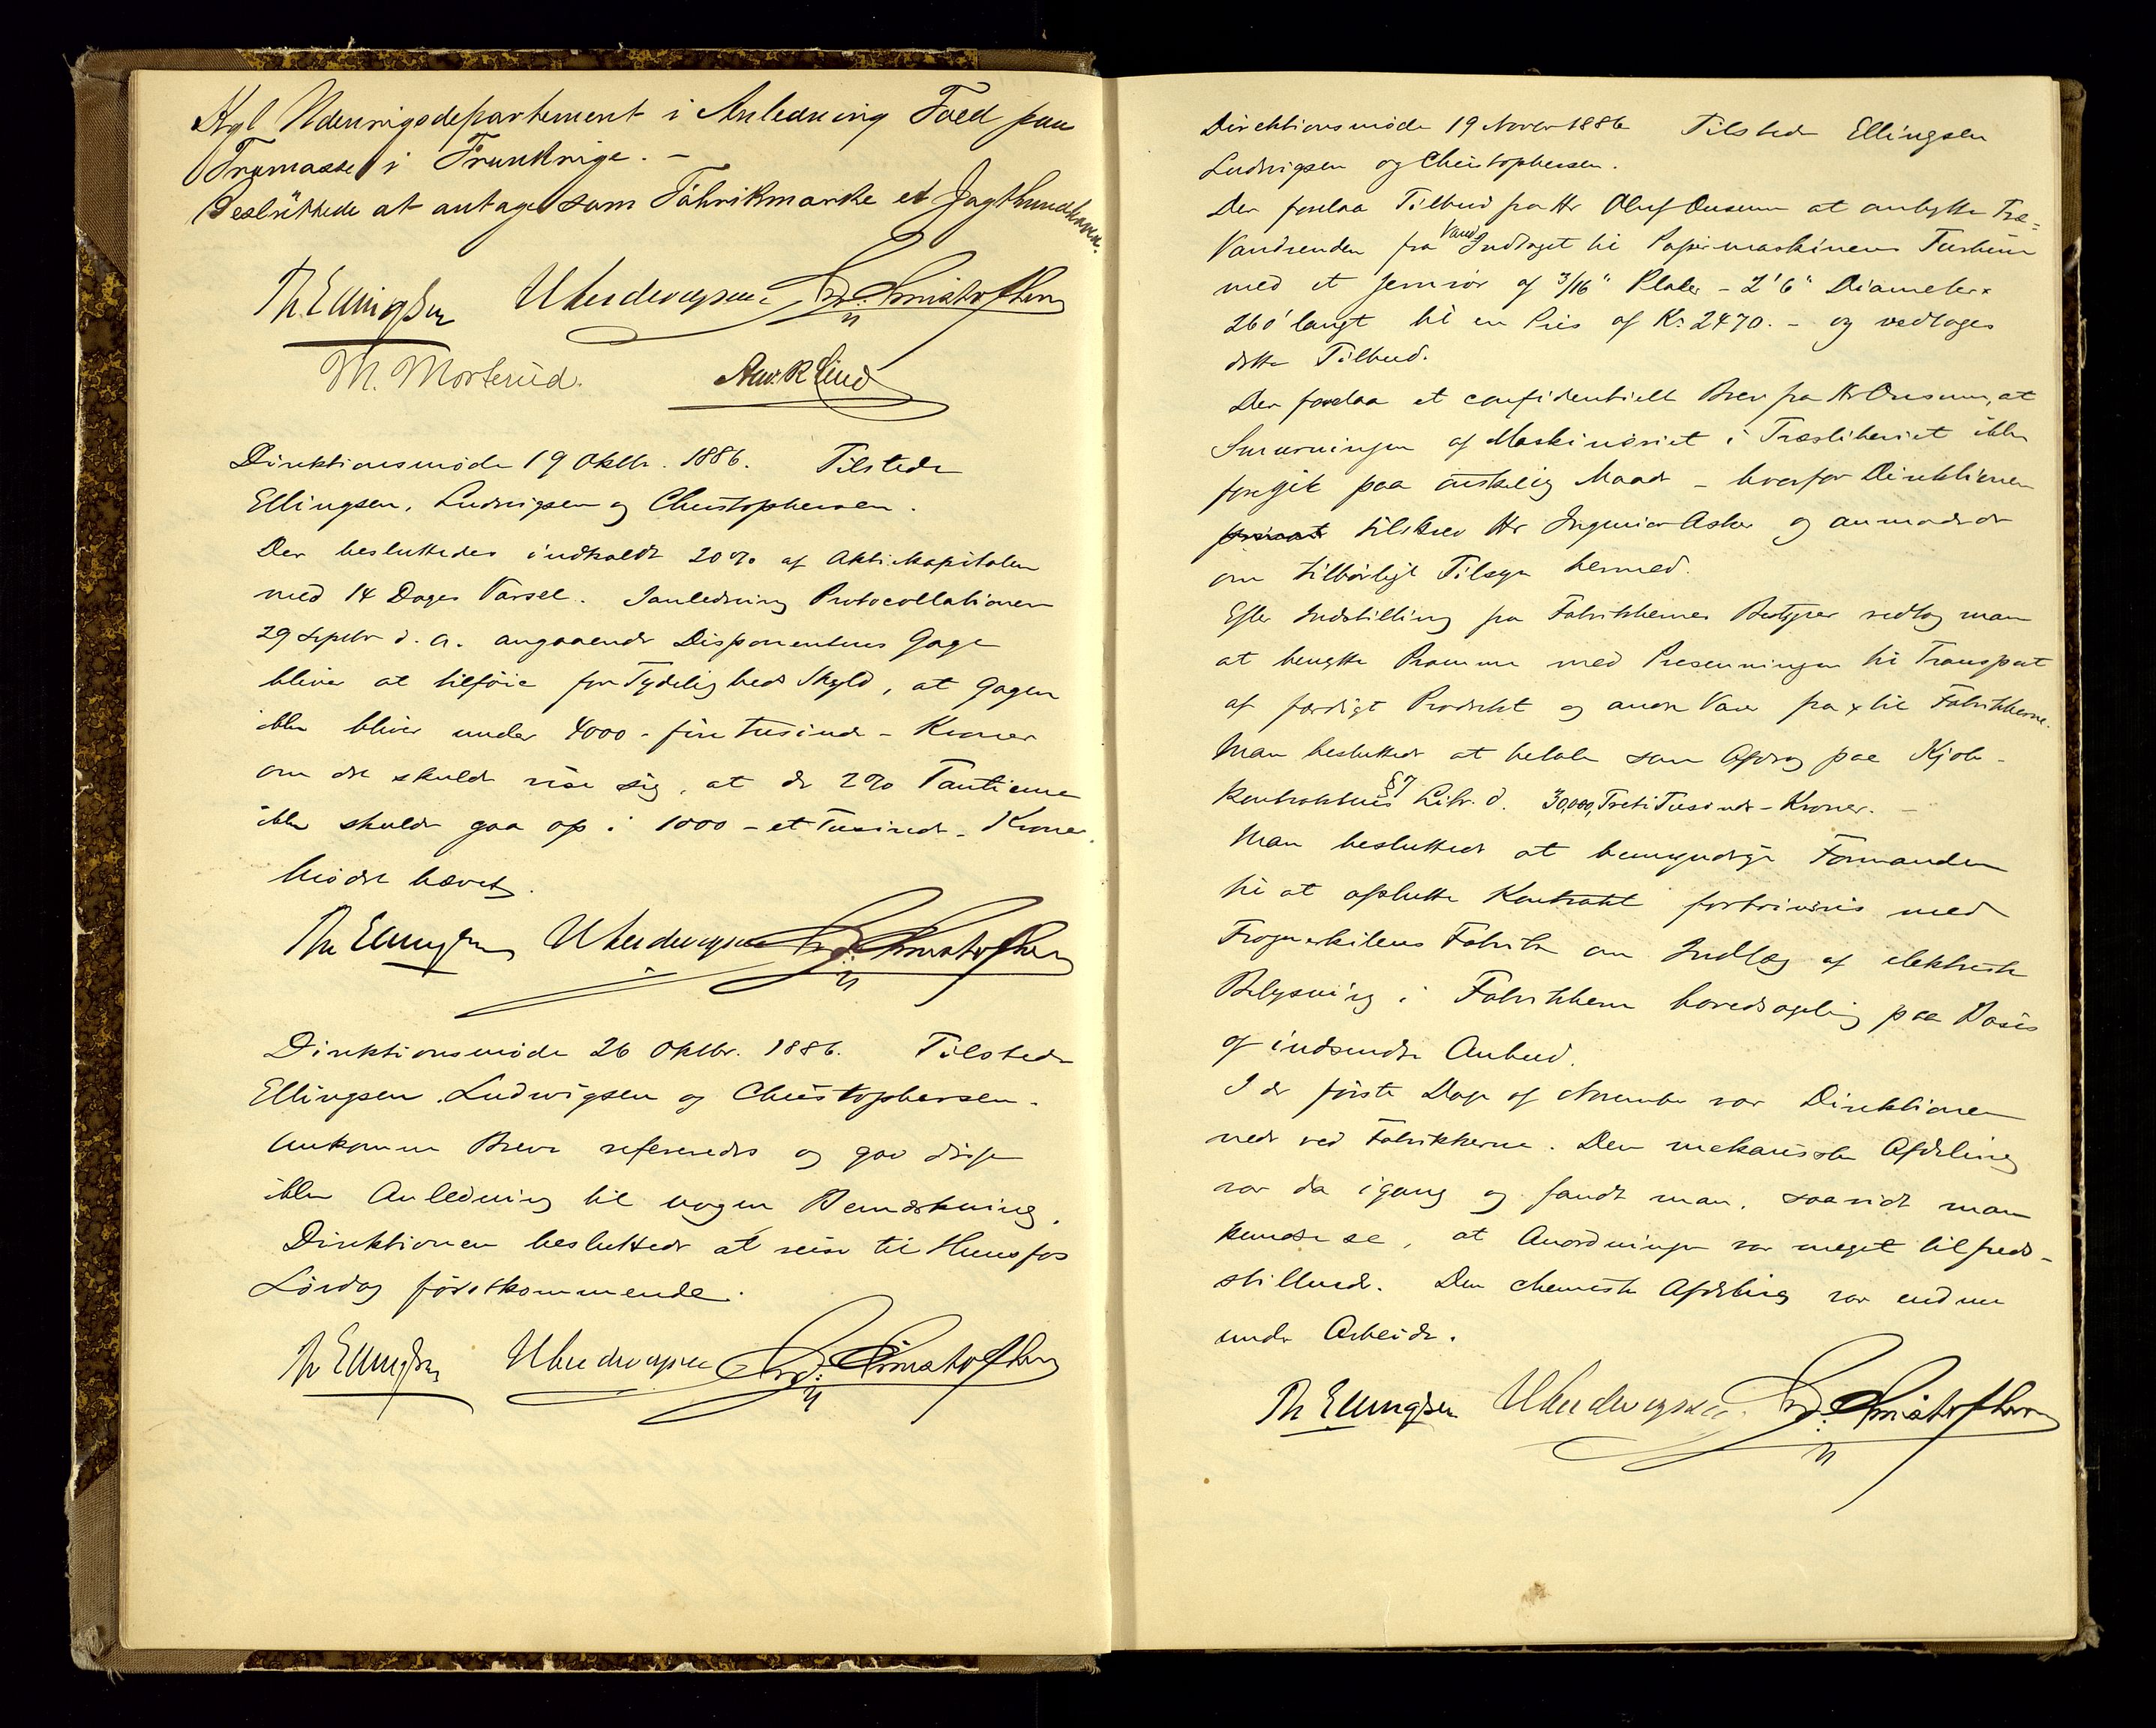 Kgl Udenrigsdepartement i Anledning Told paa
Træmasse i Frankrige. –
Besluttede at antage som Fabrikmærke et Jagthundhoved.
Th. Ellingsen U Ludwigsen Fr. Christophersen
Th. Mortsrud. Anv. R Lind
Direktionsmöde 19 Oktbr. 1886. Tilstede
Ellingsen, Ludvigsen og Christophersen.
Der besluttedes indkaldt 20% af Aktiekapitalen
med 14 Dages Varsel. I anledning Protocollationen
29 Septbr d. a. angaaende Disponentens Gage
bliver at tilföie for Tydeligheds Skyld, at Gagen
ikke bliver under 4000 – fire tusinde – Kroner
om det skulde vise sig, at de 2% Tantieme
ikke skulde gaa op i 1000 – et Tusinde – Kroner.
Mödet hævet.
Th Ellingsen U Ludwigsen Fr. Christophersen
Direktionsmöde 26 Oktbr. 1886. Tilstede
Ellingsen, Ludwigsen og Christophersen.
Ankomne Breve refereredes og gav disse
ikke Anledning til nogen Bemærkning.
Direktionen besluttede at reise til Hunsfos
Lördag förstkommende.
Th Ellingsen U Ludwigsen Fr. Christophersen
Direktionsmöde 19 Novbr 1886 Tilstede Ellingsen
Ludvigsen og Christophersen.
Der forelaa Tilbud fra Hr Oluf Onsum at ombytte Træ=
Vandrenden fra Vand Indtaget til Papirmaskinens Turbine
med et Jernrör af 3/16" Plader – 2'6" Diameter x
260' langt til en Pris af Kr. 2470. – og vedtoges
dette Tilbud.
Der forelaa et confidentielt Brev fra Hr Onsum, at
Smurningen af Maskineriet i Træsliberiet ikke
foregik paa önskelig Maade – hvorfor Direktionen
privat tilskrev Hr Ingeniör Asker og anmodede
om tilbörligt Tilsyn hermed.
Efter Indstilling fra Fabrikkernes Bestyrer vedtog man
at benytte Pramme med Presenninger til Transport
af færdigt Produkt og andre Varer fra & til Fabrikkerne.
Man besluttede at betale som Afdrag paa Kjöbe-
kontraktens §7 Litr. d. 30,000, Treti Tusinde – Kroner. –
Man besluttede at bemyndige Formanden
til at afslutte Kontrakt fortrinsvis med
Frognerkilens Fabrik om Indlæg af elektrisk
Belysning i Fabrikkerne hovedsagelig paa Basis
af indsendte Anbud.
I de förste Dage af November var Direktionen
nede ved Fabrikkerne. Den mekaniske Afdeling
var da igang og fandt man, saavidt man
kunde se, at Anordningen var meget tilfreds-
stillende. Den chemiske Afdeling var endnu
under Arbeide.
Th Ellingsen U Ludwigsen Fr. Christophersen